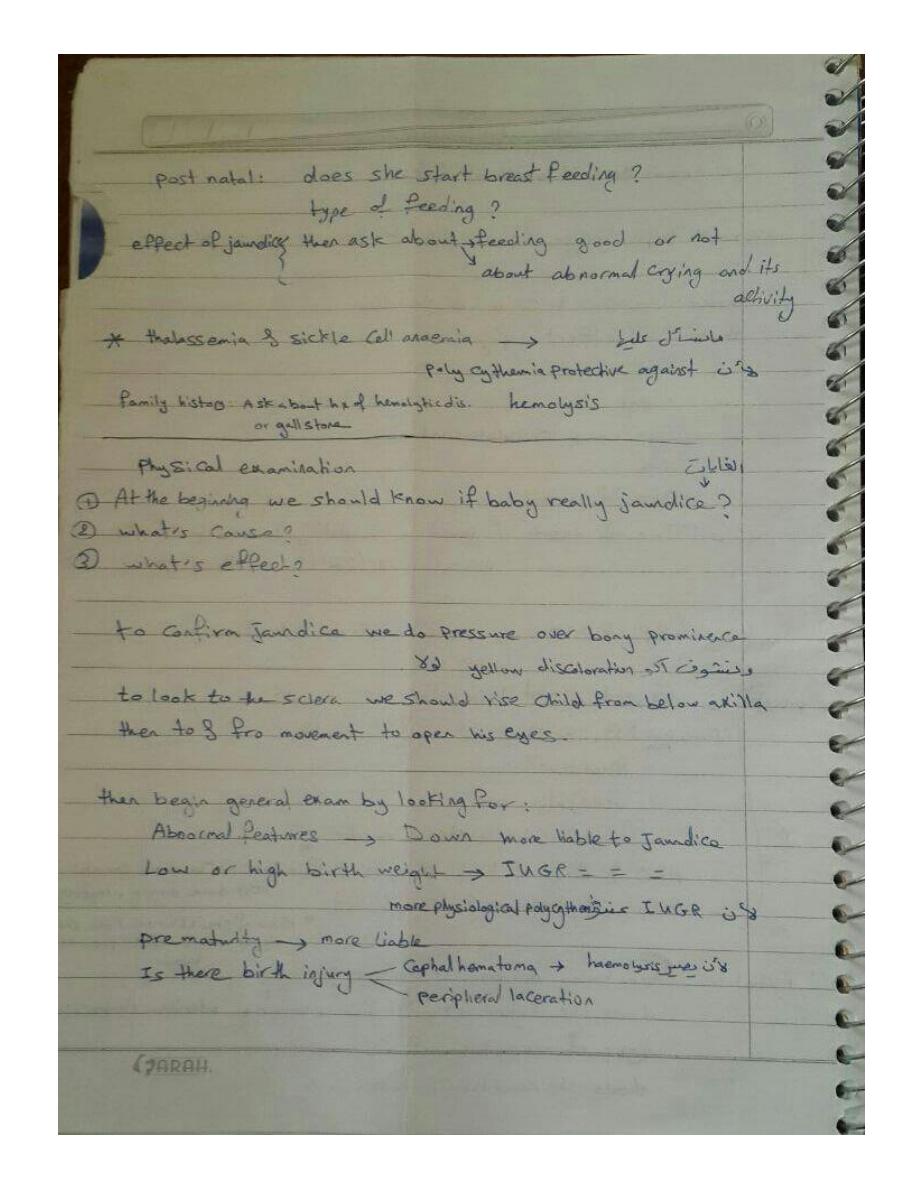 post natal: does she start breast feeding ?
type of feeding ?
effect of jaundice { then ask about → feeding good or not
↘ about abnormal crying and its
activity
* thalassemia & sickle cell anaemia → مانسأل عليها
polycythemia protective against لأن
family history: Ask about hx of hemolytic dis. hemolysis
or gall stone
physical examination الغايات
↓
① At the beginning we should know if baby really jaundice ?
② what's cause ?
③ what's effect ?
to confirm jaundice we do pressure over bony prominence
ونشوف اكو yellow discoloration لو لا
to look to the sclera we should rise child from below axilla
then to & fro movement to open his eyes.
then begin general exam by looking for :
Abnormal features → Down more liable to Jaundice
Low or high birth weight → IUGR = = =
لأن IUGR more physiological polycythemia
prematurity → more liable
Is there birth injury Cephalhematoma → لأن يصير haemolysis
peripheral laceration
SARAH.